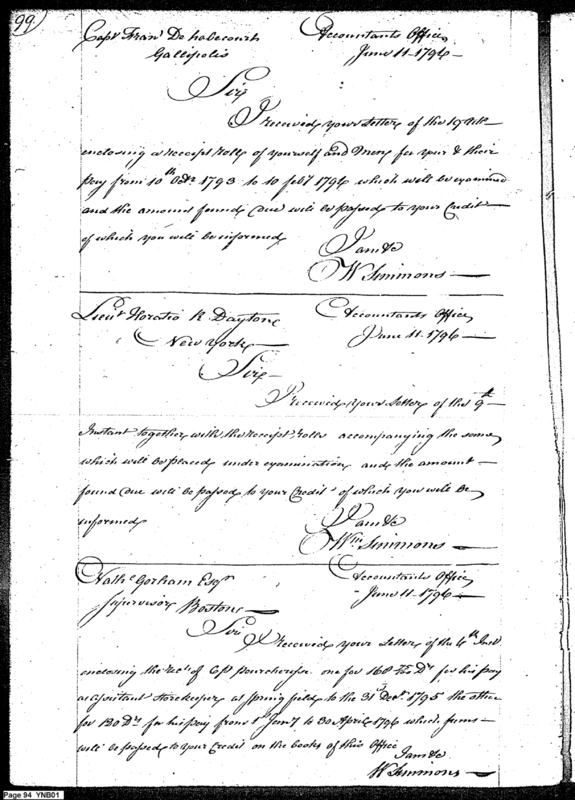 99
Capt. Fran's De hebecourt Accountants Office
Gallipolis June 11. 1796
Sir
I received your Letter of the 19 Ult
enclosing a receipt roll of yourself and Men for your & their
pay from 10th Octr 1793 to 10 feby 1796 which will be examined
and the amount found due will be passed to your Credit
of which you will be informed
I am &c
W Simmons
Lieut Horatio R Dayton Accountants Office
New York June 11. 1796
Sir
I received your Letter of the 9th
Instant together with the receipt rolls accompanying the same
which will be placed under examination and the amount
found due will be passed to your Credit of which you will be
informed
I am &c
Wm Simmons
Nathl Gorham Esqr Accountants Office
Supervisor Boston June 11. 1796
Sir
I received your Letter of the 4th Inst
enclosing the rects of one for 168 Drs for his pay
as assistant storekeeper at springfield to the 31st Decr 1795 the other
for 120 Drs for his pay from 1st Jany to 30 April 1796 which sums
will be passed to your Credit on the books of this Office
I am &c
W Simmons
Page 94 YNB01